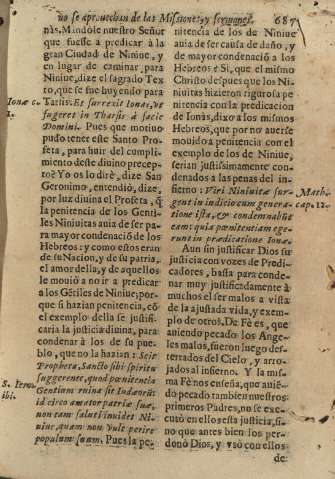 no se aprouechan de las Missiones, y sermones. 687
nàs. Mandole nuestro Señor
que fuesse a predicar à la
gran Ciudad de Niniue, y
en lugar de caminar, para
Niniue, dize el sagrado Tex
to, que se fue huyendo para
Ionæ c. Tarsis: Et surrexit Ionas, vt
1. fugeret in Tharsis à facie
Domini. Pues que motiuo
pudo tener este Santo Pro-
feta, para huir del cumpli-
miento deste diuino precep-
to? Yo os lo dirè, dize San
Geronimo, entendiò, dize,
por luz diuina el Profeta, q̃
la penitencia de los Genti-
les Niniuitas auia de ser pa-
ra mayor condenació de los
Hebreos: y como estos eran
de su Nacion, y de su patria,
el amor della, y de aquellos
le mouiò a no ir a predicar
a los Gétiles de Niniue; por-
que si hazian penitencia, cõ
el exemplo della se justifi-
caria la justicia diuina, para
condenar à los de su pue-
blo, que no la hazian: Scit
Propheta, Sancto sibi spiritu
S. Iero. suggerente, quod pœnitentia
ibi. Gentium ruina sit Iudæorũ
id circo amator patriæ suæ,
non tam saluti inuidet Ni-
niue, quam non vult perire
populum suum. Pues la pe-
nitencia de los de Niniue
auia de ser causa de daño, y
de mayor condenació a los
Hebreos e Si, que el mismo
Christo despues que los Ni-
niuitas hizieron rigurosa pe
nitencia con la predicacion
de Ionàs, dixo a los mismos
Hebreos, que por no auerse
mouido a penitencia con el
exemplo de los de Niniue,
serian justissimamente con-
denados a las penas del in-
fierno: Viri Niniuitæ sur- Math.
gent in indicio cum genera- cap. 12.
tione ista, & condemnabũt
eam: quia pœnitentiam ege-
runt in prædicatione Ionæ.
Aun sin justificar Dios su
justicia con vozes de Predi-
cadores, basta para conde-
nar muy justificadamente à
muchos el ser malos a vista
de la ajustada vida, y exem-
plo de otros. De Fè es, que
auiendo pecado los Ange-
les malos, fueron luego des-
terrados del Cielo, y arro-
jados al infierno. Y la mis-
ma Fè nos enseña, que auié-
do pecado tambien nuestros
primeros Padres, no se exe-
cutò en ellos esta justicia, si-
no que antes bien los per-
donò Dios, y vsò con ellos
de